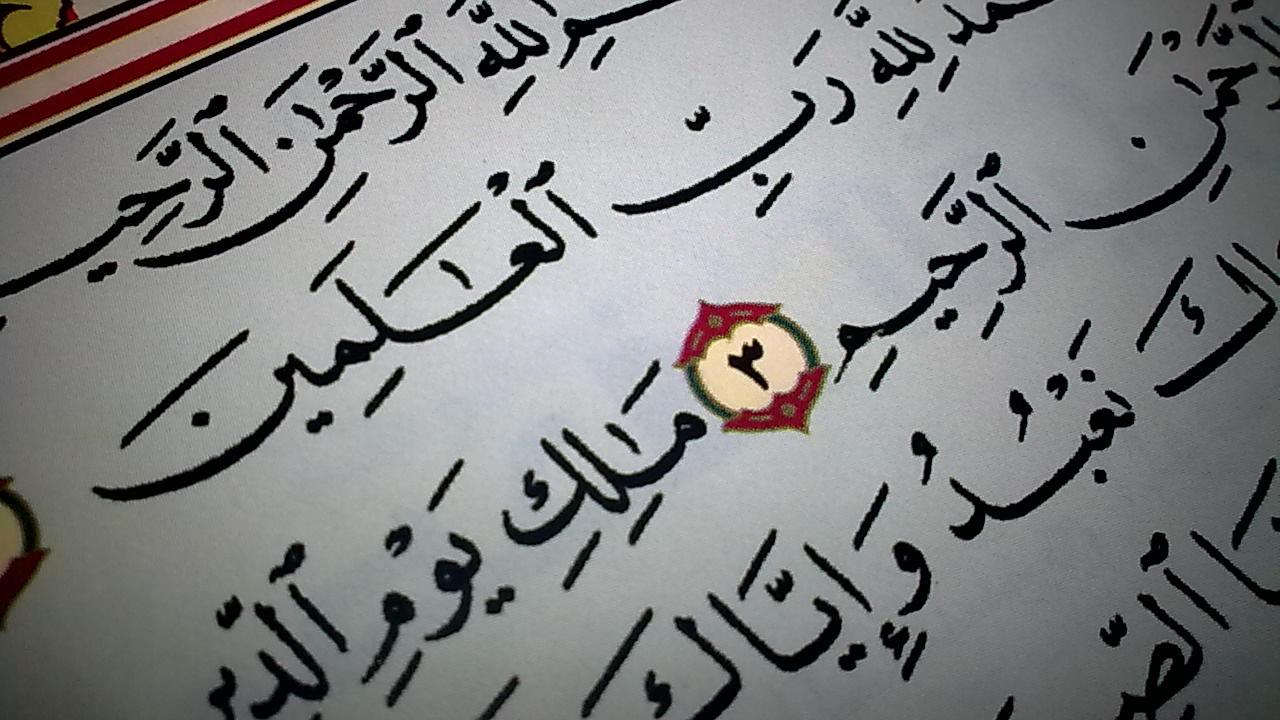 ٱللَّهِ ٱلرَّحْمَٰنِ ٱلرَّحِيـ
لِلَّهِ رَبِّ ٱلْعَٰلَمِينَ
ٱلرَّحْمَٰنِ ٱلرَّحِيمِ ٣ مَٰلِكِ يَوْمِ ٱلدِّيـ
ـاكَ نَعْبُدُ وَإِيَّاكَ
ـنَا ٱلصِّـ